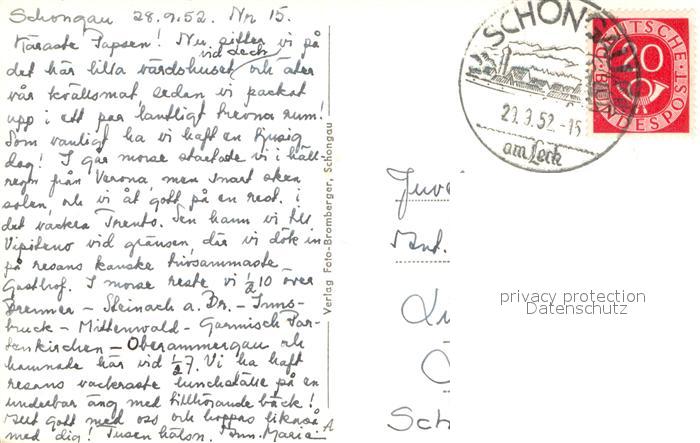 Schongau 28.9.52. Nr 15.
Käraste Papsen! Nu sitter vi på
vid Lech
det här lilla värdshuset och äter
vår kvällsmat sedan vi packat
upp i ett par lantligt trevna rum!
Som vanligt ha vi haft en tjusig
dag! I går morse startade vi i häll-
regn från Verona, men snart sken
solen, och vi åt gott på en rest. i
det vackra Trento. Sen hann vi till
Vipiteno vid gränsen, där vi dök in
på resans kanske trivsammaste
Gasthof. I morse reste vi ½10 över
Brenner - Steinach a. Br. - Inns-
bruck - Mittenwald - Garmisch Par-
tenkirchen - Oberammergau och
hamnade här vid ½7. Vi ha haft
resans vackraste lunchställe på en
underbar äng med tillhörande bäck!
Allt gott med oss och hoppas likaså
med dig! Tusen hälsn. Ann-Marie
Verlag Foto-Bromberger, Schongau
SCHONGAU
29.9.52.-15
am Lech
DEUTSCHE BUNDESPOST
20
Juve
Ant.
Sch
privacy protection
Datenschutz